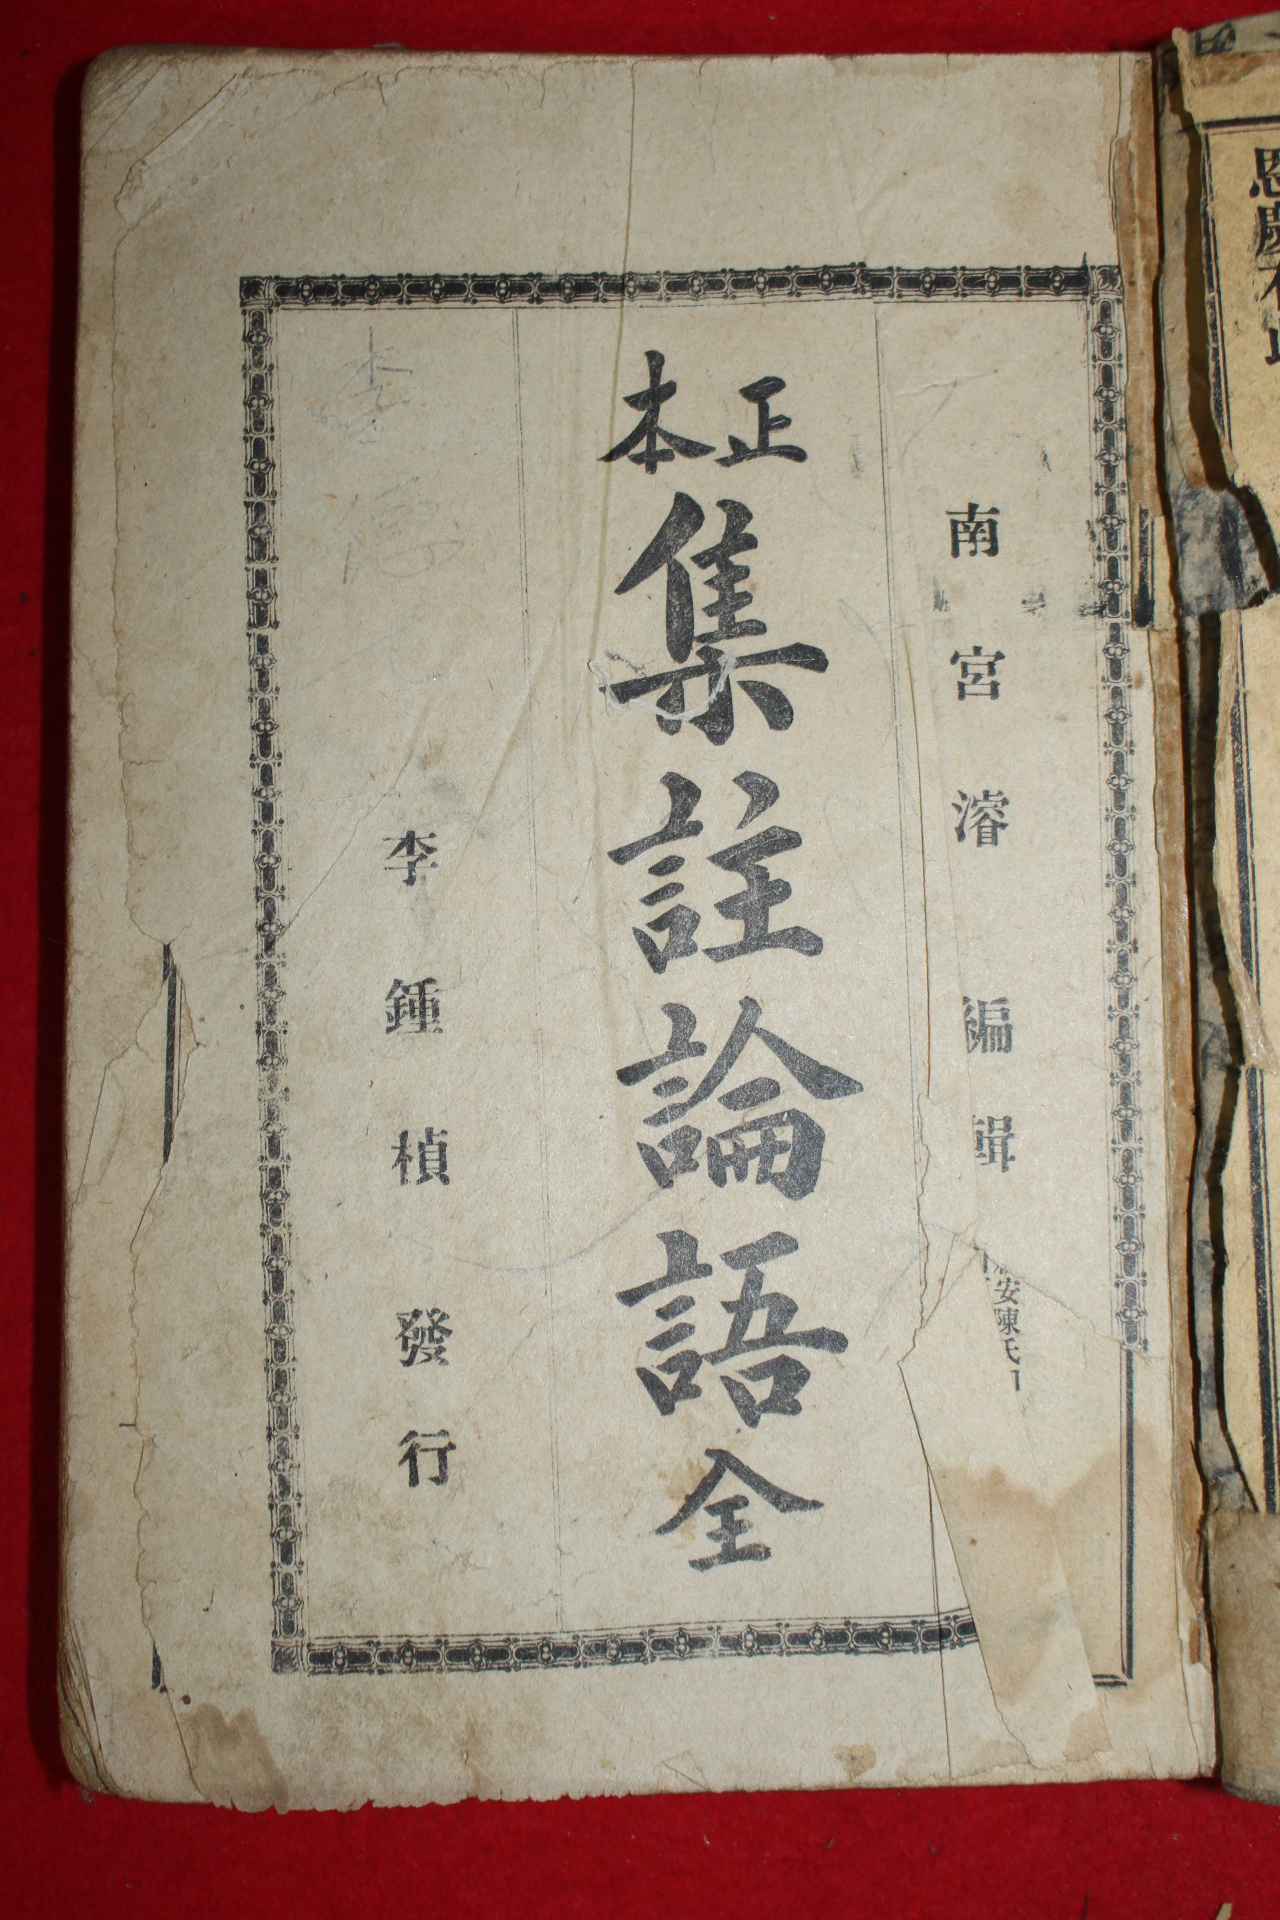 南宮濬 編輯
正本 集註論語 全
李鍾楨 發行
安陳氏